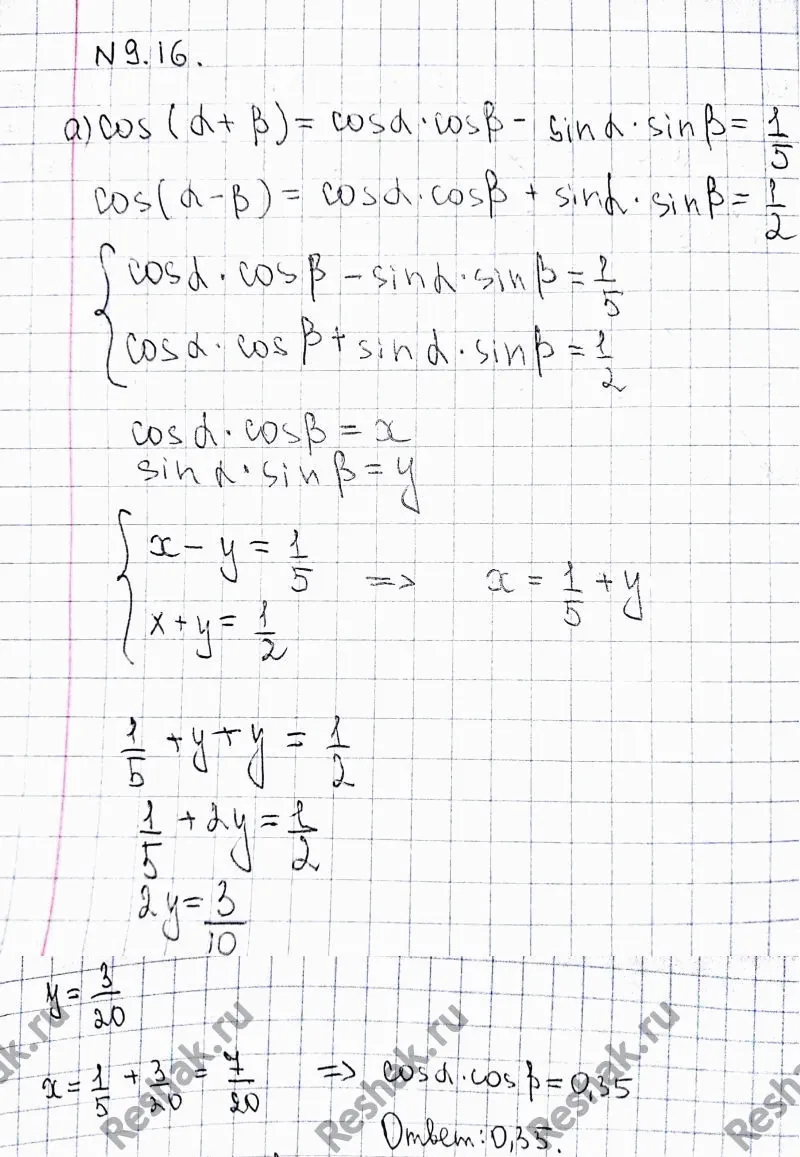 N 9.16.
а) cos(α + β) = cosα · cosβ - sinα · sinβ = 1/5
cos(α - β) = cosα · cosβ + sinα · sinβ = 1/2
{ cosα · cosβ - sinα · sinβ = 1/5
cosα · cosβ + sinα · sinβ = 1/2
cosα · cosβ = x
sinα · sinβ = y
{ x - y = 1/5 => x = 1/5 + y
x + y = 1/2
1/5 + y + y = 1/2
1/5 + 2y = 1/2
2y = 3/10
y = 3/20
x = 1/5 + 3/20 = 7/20 => cosα · cosβ = 0,35
Ответ: 0,35.
Reshak.ru
Reshak.ru
Reshak.ru
Reshak.ru